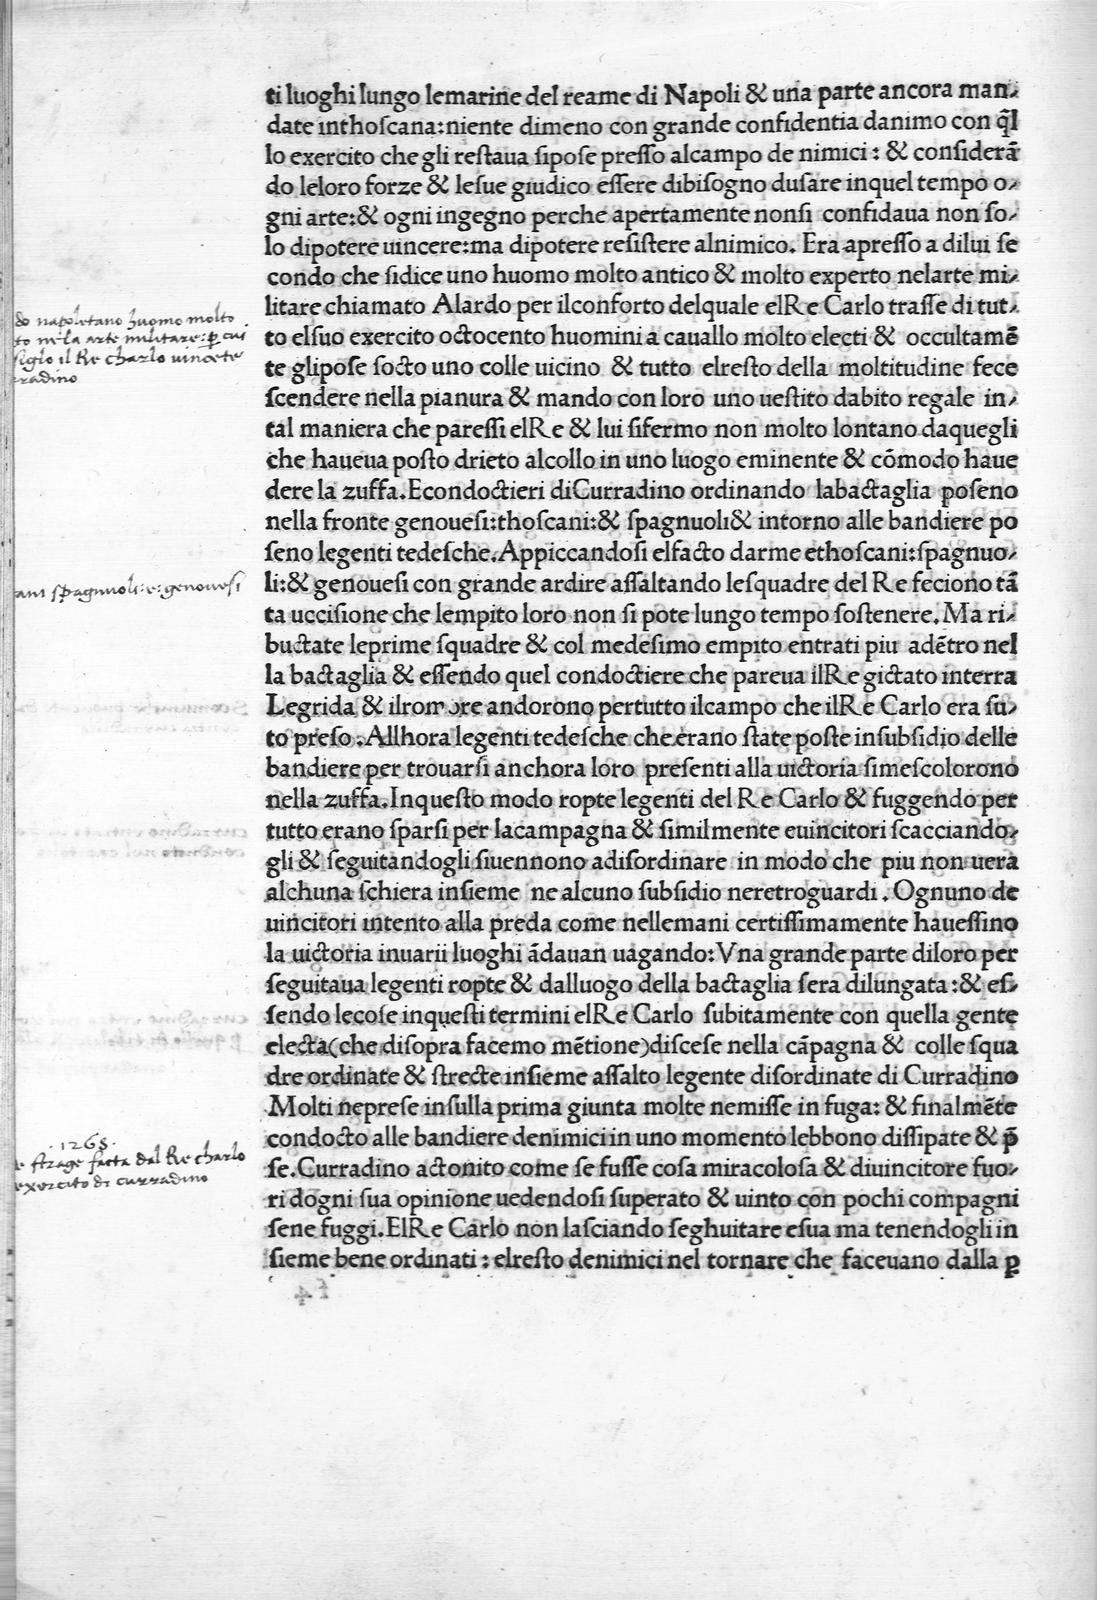 ti luoghi lungo lemarine del reame di Napoli & una parte ancora man⸗
date inthoſcana:niente dimeno con grande confidentia danimo con q̃l
lo exercito che gli reſtaua ſipoſe preſſo alcampo de nimici : & conſiderã
do leloro forze & leſue giudico eſſere dibiſogno duſare inquel tempo o⸗
gni arte:& ogni ingegno perche apertamente nonſi confidaua non ſo⸗
lo dipotere uincere:ma dipotere reſiſtere alnimico. Era apreſſo a dilui ſe
condo che ſidice uno huomo molto antico & molto experto nelarte mi⸗
litare chiamato Alardo per ilconforto delquale elRe Carlo traſſe di tut⸗
to elſuo exercito octocento huomini a cauallo molto electi & occultamẽ
te glipoſe ſocto uno colle uicino & tutto elreſto della moltitudine fece
ſcendere nella pianura & mando con loro uno ueſtito dabito regale in⸗
tal maniera che pareſſi elRe & lui ſifermo non molto lontano daquegli
che haueua poſto drieto alcollo in uno luogo eminente & cõmodo haue
dere la zuffa.Econdoctieri diCurradino ordinando labactaglia poſeno
nella fronte genoueſi:thoſcani:& ſpagnuoli& intorno alle bandiere po
ſeno legenti tedeſche.Appiccandoſi elfacto darme ethoſcani:ſpagnuo⸗
li:& genoueſi con grande ardire aſſaltando leſquadre del Re feciono tã
ta ucciſione che lempito loro non ſi pote lungo tempo ſoſtenere.Ma ri⸗
buctate leprime ſquadre & col medeſimo empito entrati piu adẽtro nel
la bactaglia & eſſendo quel condoctiere che pareua ilRe gictato interra
Legrida & ilromore andorono pertutto ilcampo che ilRe Carlo era ſu⸗
to preſo.Allhora legenti tedeſche che erano ſtate poſte inſubſidio delle
bandiere per trouarſi anchora loro preſenti alla uictoria ſimeſcolorono
nella zuffa.Inqueſto modo ropte legenti del Re Carlo & fuggendo per
tutto erano ſparſi per lacampagna & ſimilmente euincitori ſcacciando⸗
gli & ſeguitandogli ſiuennono adiſordinare in modo che piu non uera
alchuna ſchiera inſieme ne alcuno ſubſidio neretroguardi . Ognuno de
uincitori intento alla preda come nellemani certiſſimamente haueſſino
la uictoria inuarii luoghi ãdauan uagando:Vna grande parte diloro per
ſeguitaua legenti ropte & dalluogo della bactaglia ſera dilungata:& eſ⸗
ſendo lecoſe inqueſti termini elRe Carlo ſubitamente con quella gente
electa(che diſopra facemo mẽtione)diſceſe nella cãpagna & colle ſqua
dre ordinate & ſtrecte inſieme aſſalto legente diſordinate di Curradino
Molti nepreſe inſulla prima giunta molte nemiſſe in fuga: & finalmẽte
condocto alle bandiere denimici in uno momento lebbono diſſipate & p̃
ſe.Curradino actonito come ſe fuſſe coſa miracoloſa & diuincitore fuo⸗
ri dogni ſua opinione uedendoſi ſuperato & uinto con pochi compagni
ſene fuggi.ElRe Carlo non laſciando ſeghuitare eſua ma tenendogli in
ſieme bene ordinati : elreſto denimici nel tornare che faceuano dalla ꝑ
do napoletano huomo molto
to nela arte militare: ꝑ cui
siglo il Re charlo vincete
rradino
ani spagnuoli: e: genovesi
.1268.
e strage facta dal Re charlo
exercito di curradino